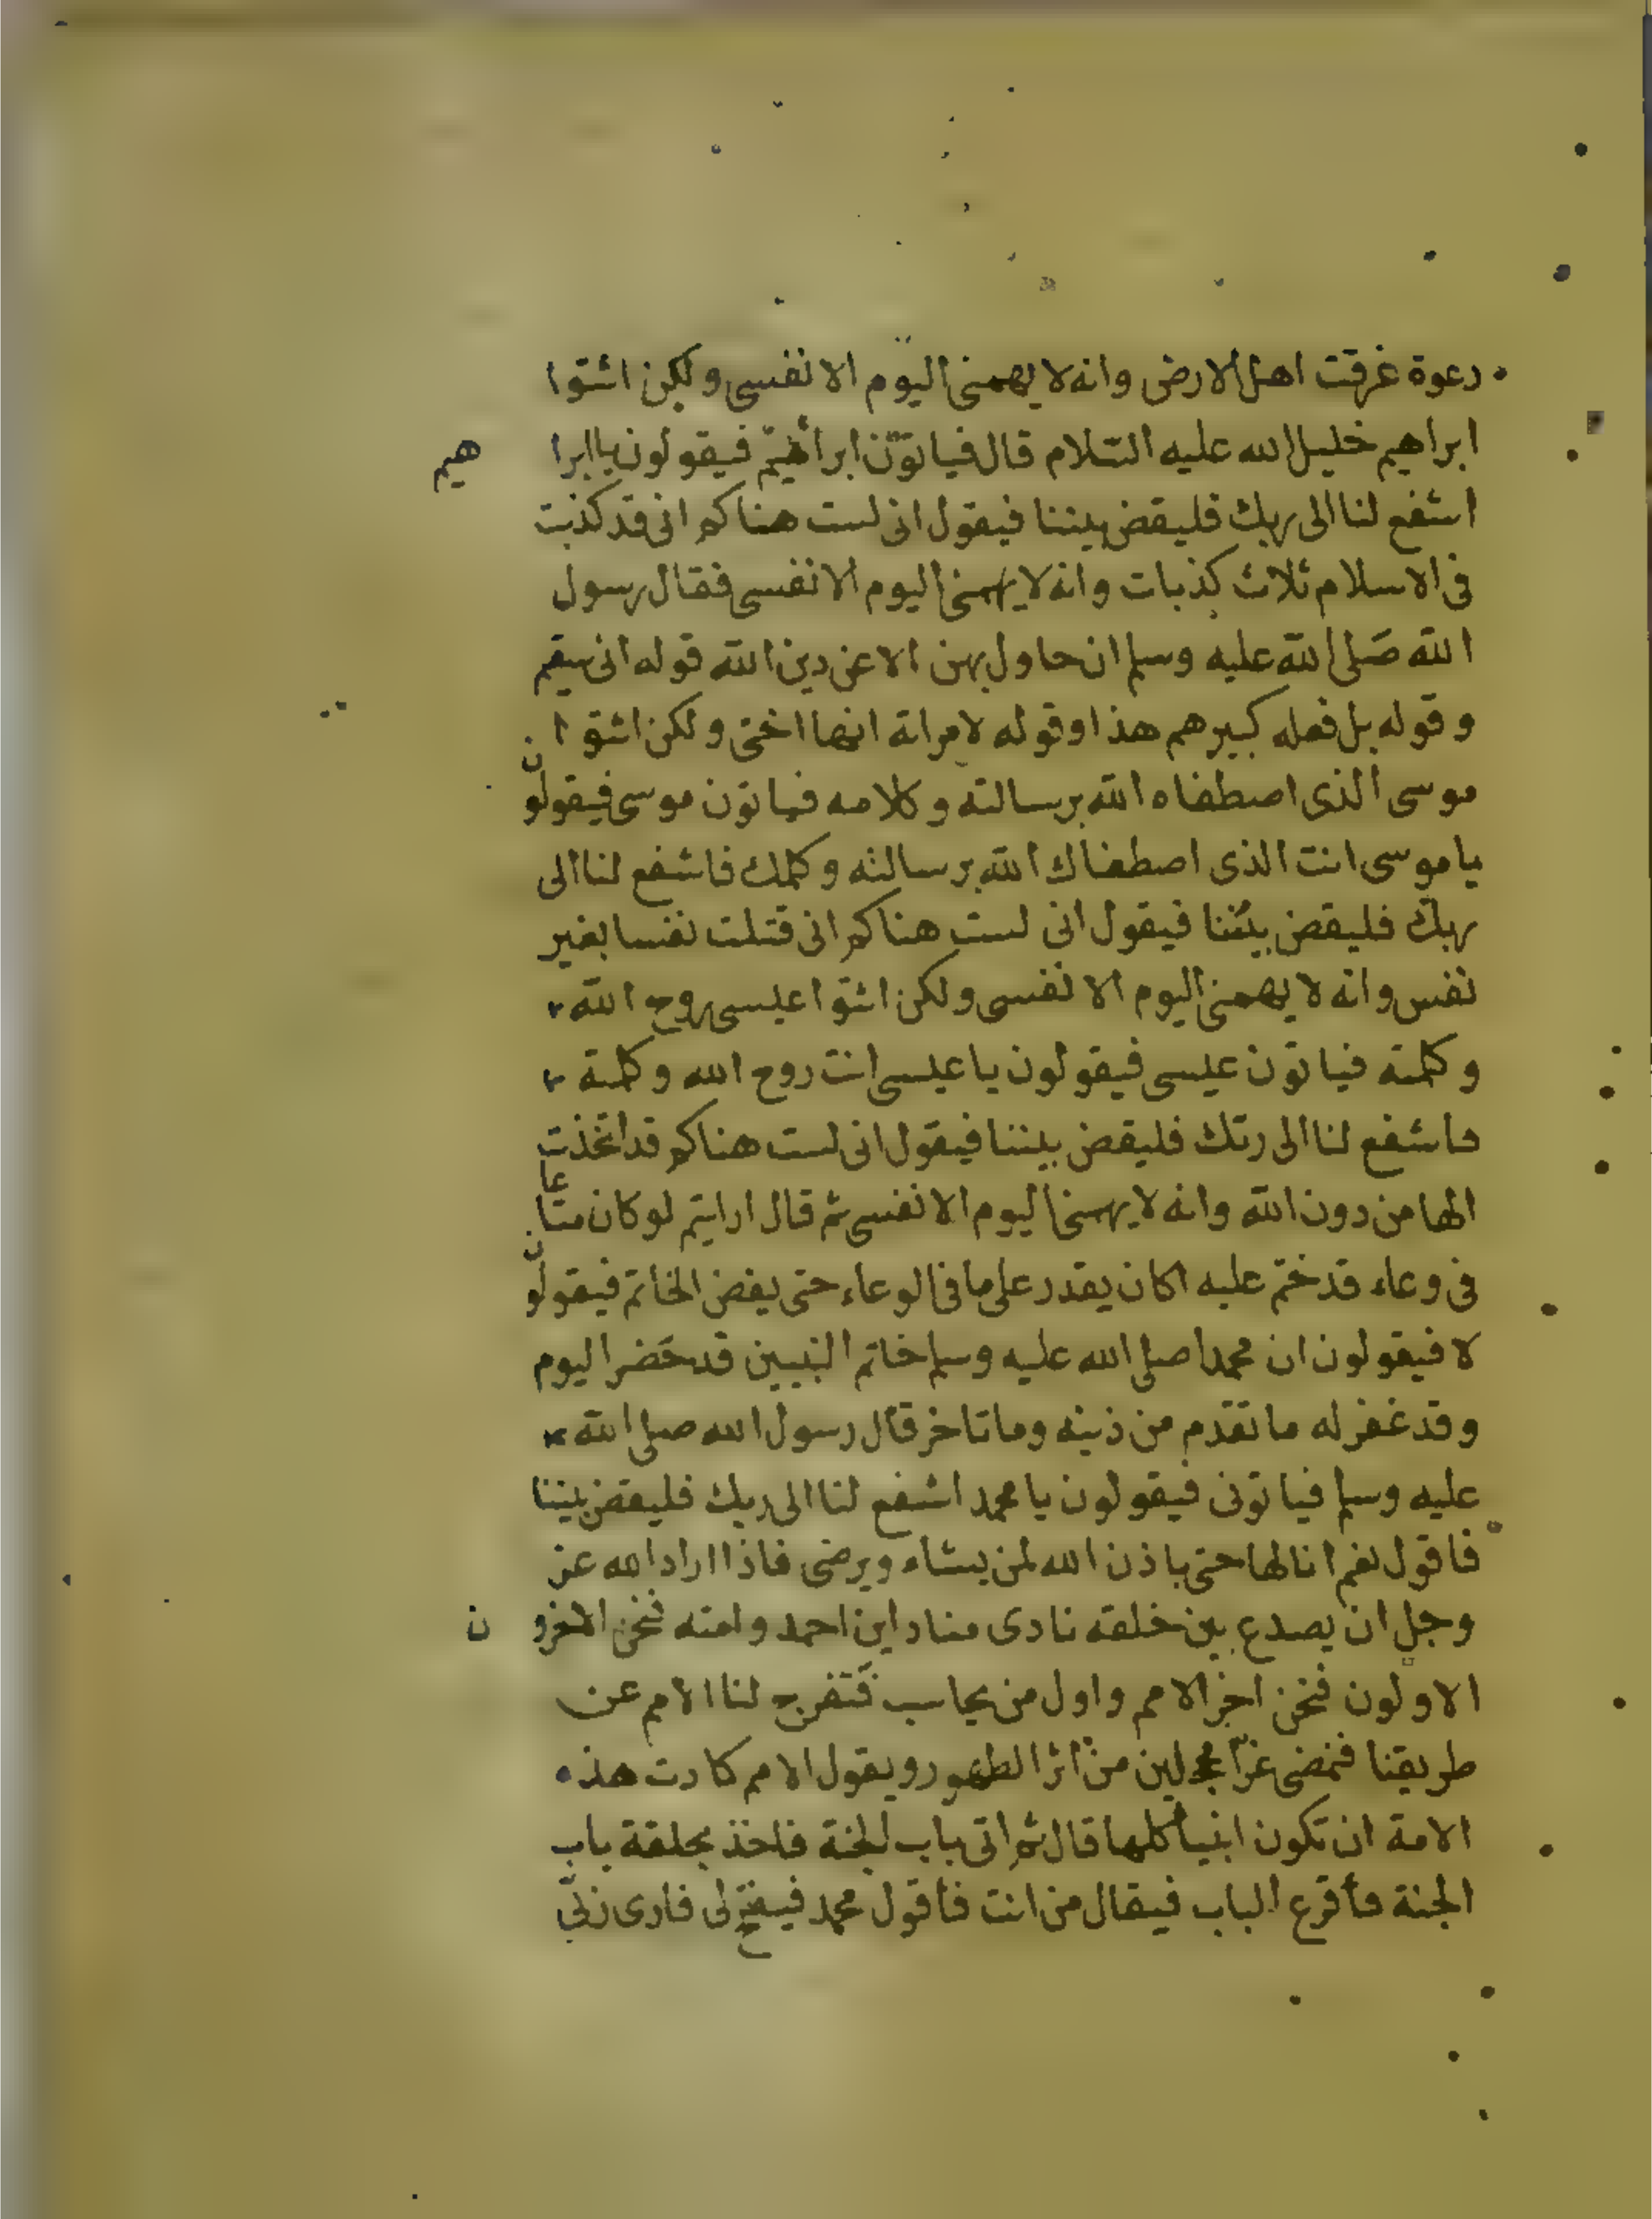 دعوة غرقت اهل الارض وانه لا يهمنى اليوم الا نفسى ولكن ائتوا
ابراهيم خليل الله عليه السلام قال فياتون ابراهيم فيقولون يا ابراهيم
اشفع لنا الى ربك فليقض بيننا فيقول انى لست هناكم انى قد كذبت
فى الاسلام ثلاث كذبات وانه لا يهمنى اليوم الا نفسى فقال رسول
الله صلى الله عليه وسلم ان حاول بهن الا عن دين الله قوله انى سقيم
وقوله بل فعله كبيرهم هذا وقوله لامراته انها اختى ولكن ائتوا
موسى الذى اصطفاه الله برسالته وكلامه فياتون موسى فيقولون
يا موسى انت الذى اصطفاك الله برسالته وكلمك فاشفع لنا الى
ربك فليقض بيننا فيقول انى لست هناكم انى قتلت نفسا بغير
نفس وانه لا يهمنى اليوم الا نفسى ولكن ائتوا عيسى روح الله
وكلمته فياتون عيسى فيقولون يا عيسى انت روح الله وكلمته
فاشفع لنا الى ربك فليقض بيننا فيقول انى لست هناكم قد اتخذت
الها من دون الله وانه لا يهمنى اليوم الا نفسى ثم قال ارايتم لو كان متاعا
فى وعاء قد ختم عليه اكان يقدر على ما فى الوعاء حتى يفض الخاتم فيقولون
لا فيقولون ان محمدا صلى الله عليه وسلم خاتم النبيين قد حضر اليوم
وقد غفر له ما تقدم من ذنبه وما تاخر قال رسول الله صلى الله
عليه وسلم فياتونى فيقولون يا محمد اشفع لنا الى ربك فليقض بيننا
فاقول نعم انا لها حتى ياذن الله لمن يشاء ويرضى فاذا اراد الله عز
وجل ان يصدع بين خلقه نادى مناد اين احمد وامته فنحن الاخرون
الاولون فنحن اخر الامم واول من يحاسب فتفرج لنا الامم عن
طريقنا فنمضى غرا محجلين من اثر الطهور ويقول الامم كادت هذه
الامة ان تكون انبياء كلها قال ثم اتى باب الجنة فاخذ بحلقة باب
الجنة فأقرع الباب فيقال من انت فأقول محمد فيفتح لى فارى ربى